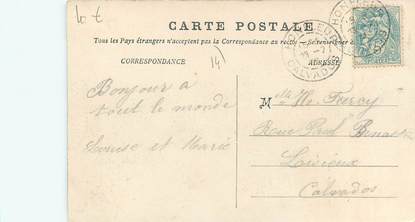 10 €
CARTE POSTALE
Tous les Pays étrangers n'acceptent pas la Correspondance au recto
Se renseigner
CORRESPONDANCE
ADRESSE
HONFLEUR
CALVADOS
141
Bonjour à
tout le monde
Louise et Marie
M
Rue Paul
Lisieux
Calvados